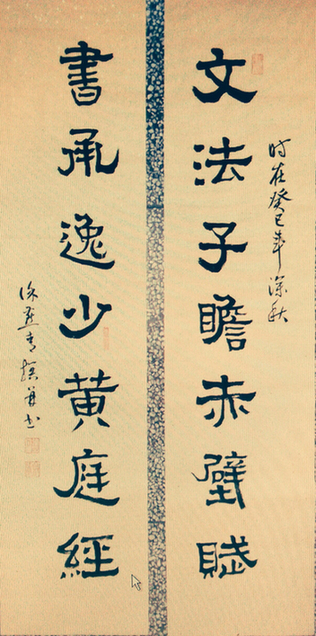 文法子瞻赤壁賦
時在癸巳年深秋
書承逸少黄庭經